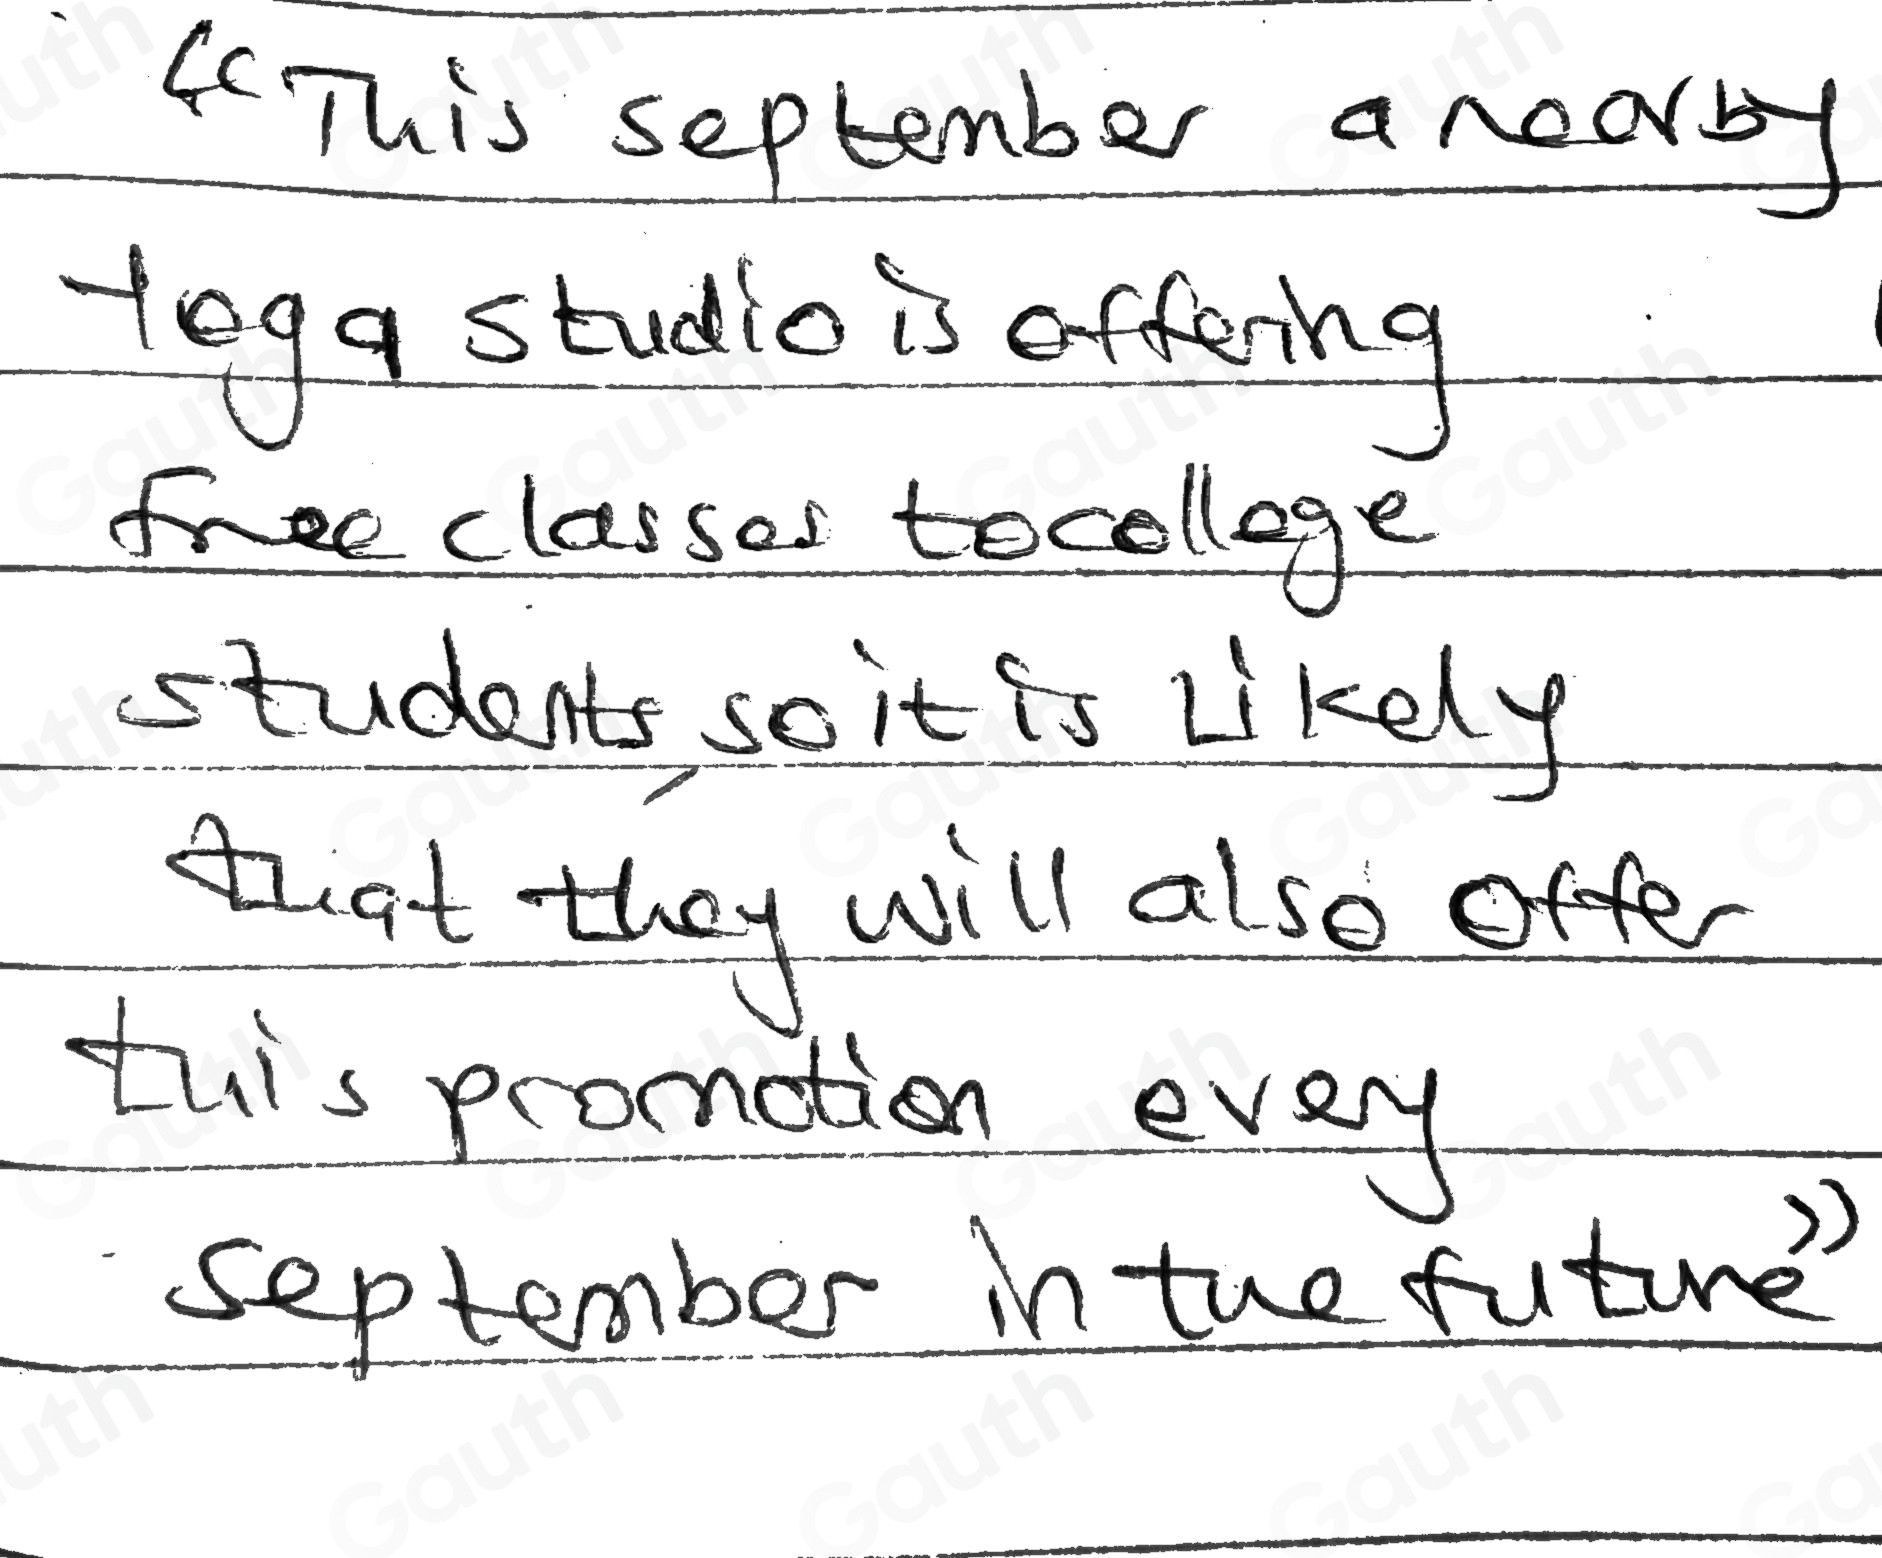 “This september a nearby
Yoga studio is offering
free classes to college
students, so it is likely
that they will also offer
this promotion every
september in the future”